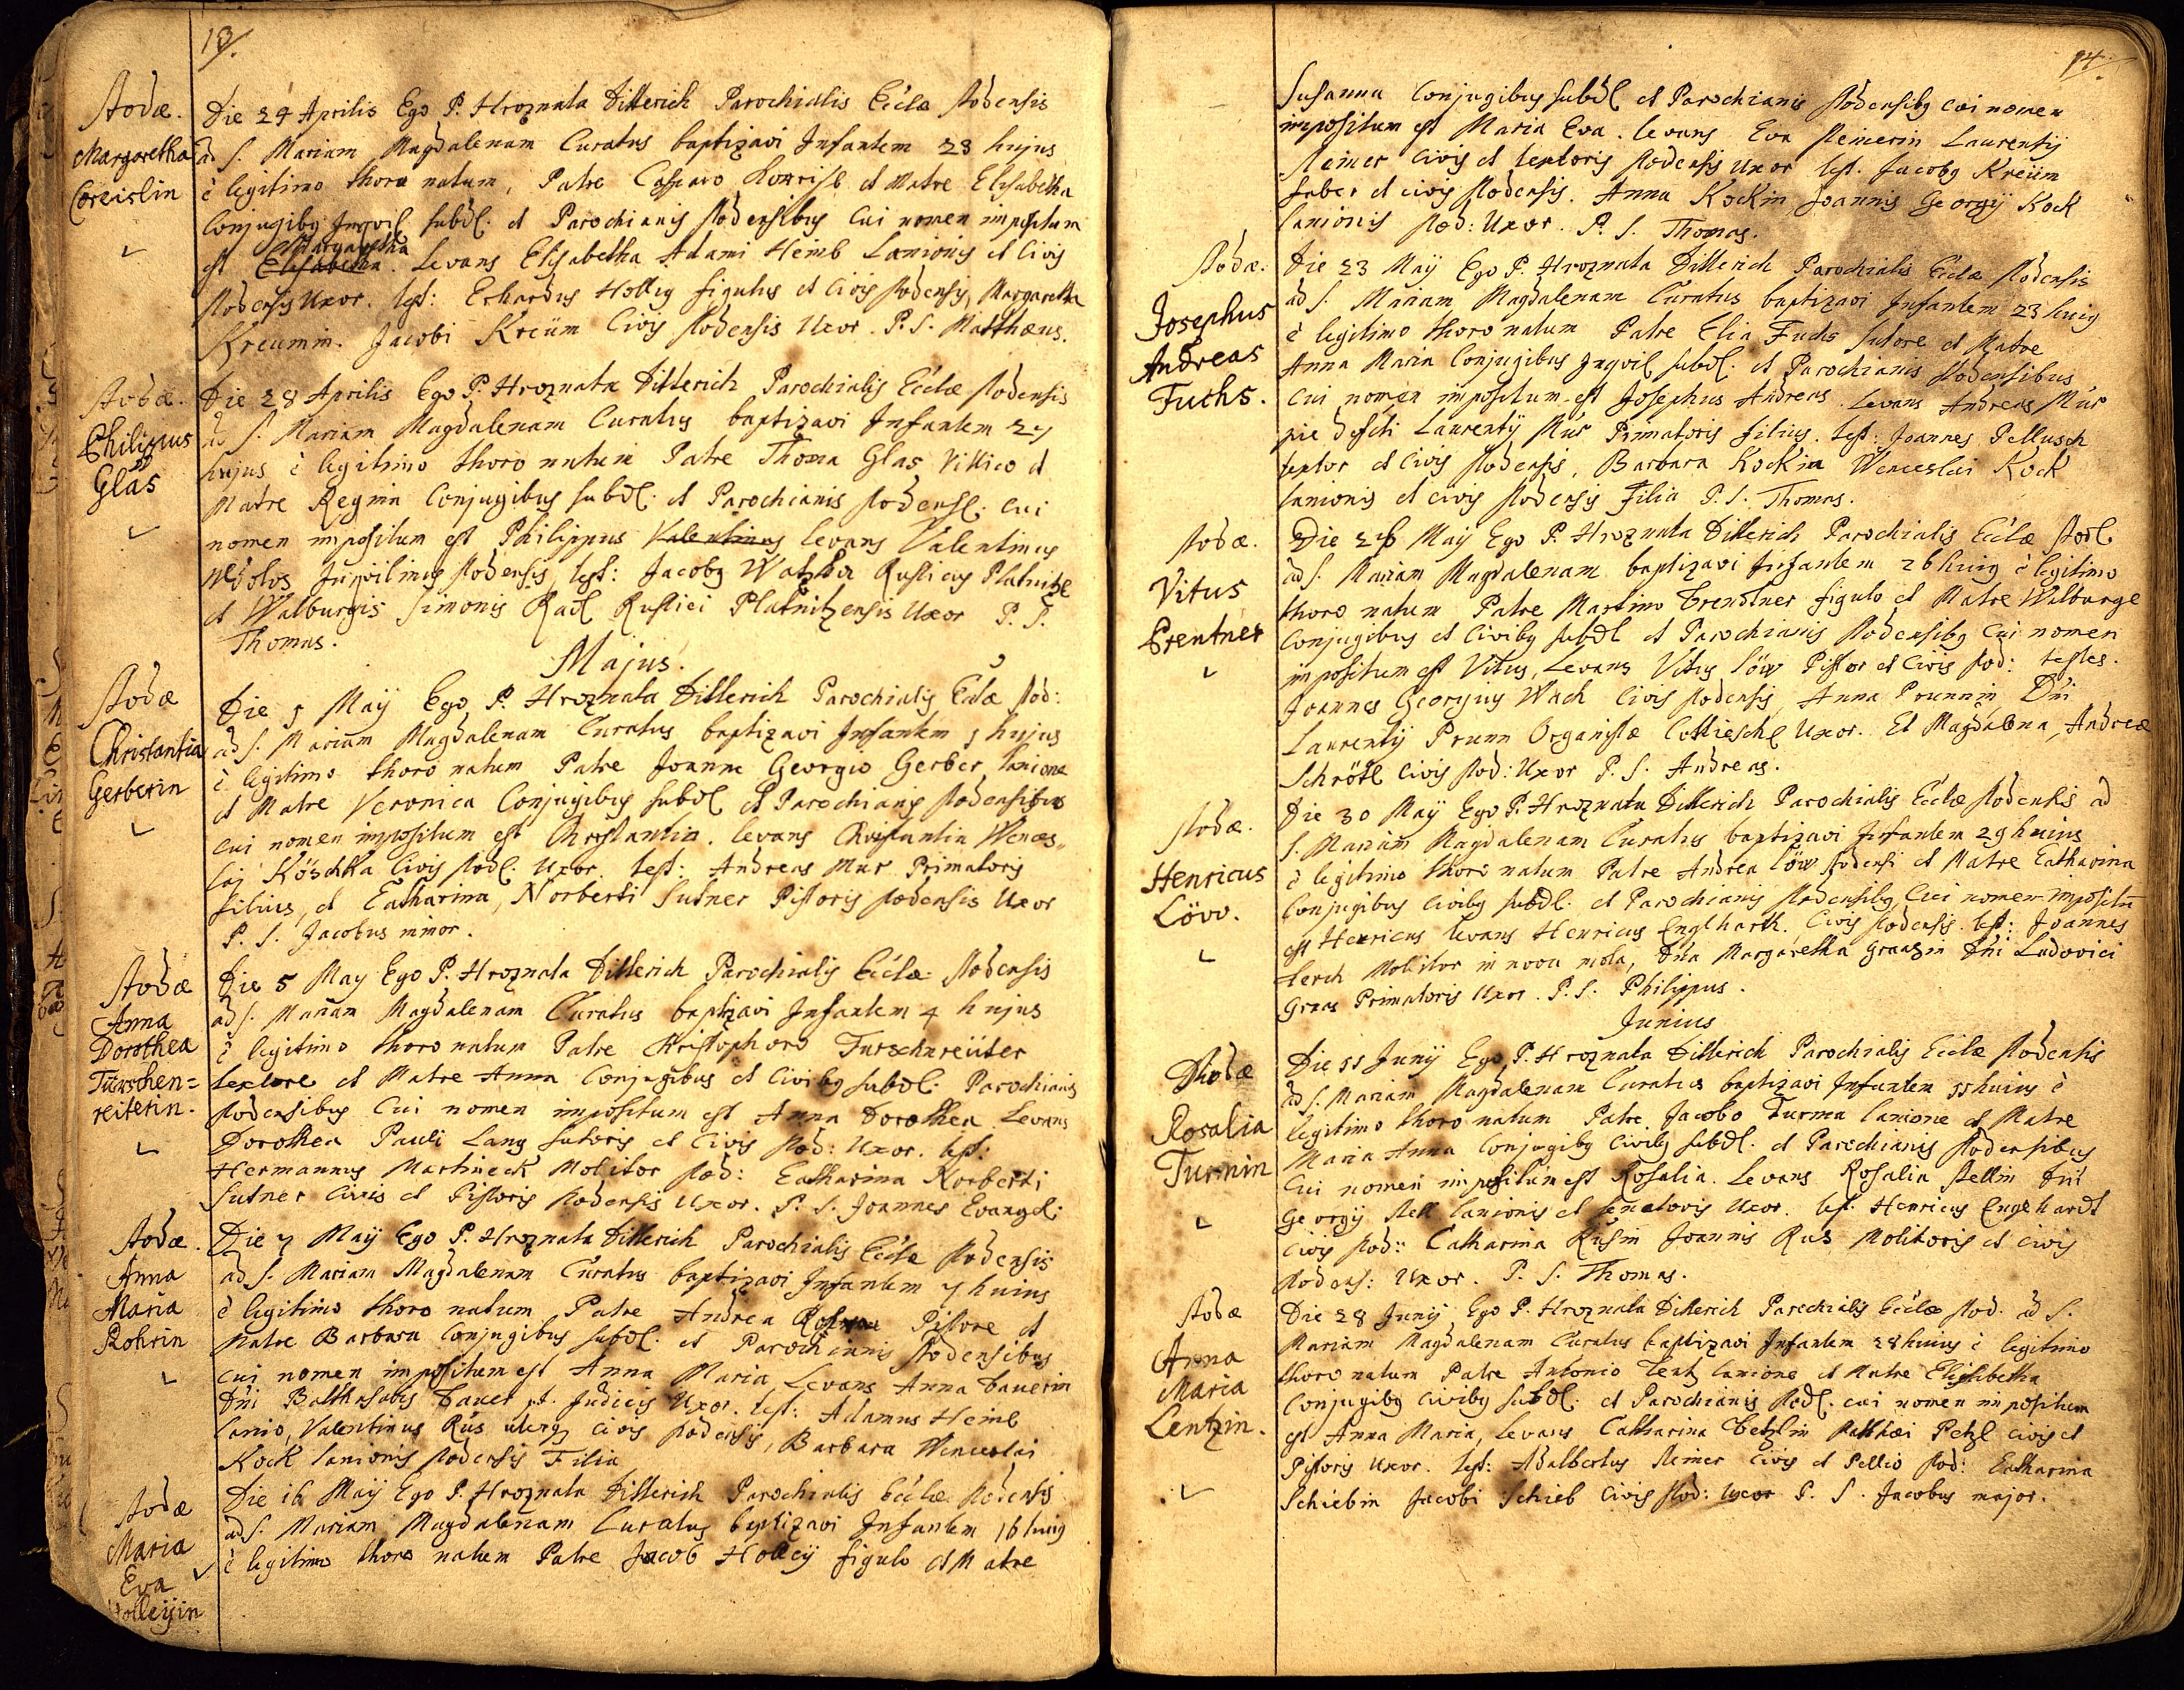 13.
Stodæ.
Margaretha
Coreislin
Die 24 Aprilis Ego P. Hroznata Dilterich Parochialis Eccłæ Stodensis
ad S. Mariam Magdalenam Curatus baptizavi Infantem 23 hujus
è legitimo thoro natum, Patre Casparo et Matre Elisabetha
Conjugibg Inqvil. subdl. et Parochianis Stodensibus Cui nomen impositum
Margaretha
est Elisabetha. Levans Elisabetha Adami Heinl Lanionis et Civis
Stodensis Uxor. test: Erhardus Hollig figulus et Civis Stodensis, Margaretha
Kreümin. Jacobi Kreüm Civis Stodensis Uxor. P. S. Matthæus.
Stodæ.
Philippus
Glas
Die 28 Aprilis Ego P. Hroznata Dilterich Parochialis Eccłæ Stodensis
ad S. Mariam Magdalenam Curatus baptizavi Infantem 27
hujus è legitimo thoro natum Patre Thoma Glas Villico et
Matre Regina Conjugibus subdl. et Parochianis Stodensl. cui
nomen impositum est Philippus Valentinus levans Valentinus
Inqvilinus Stodensis, test: Jacobg Watzka Rusticus Platnitzl
et Walburgis Simonis Radl Rustici Platnitzensis Uxor P. S.
Thomas.
Majus.
Stodæ
Christantia
Gerberin
Die 5 Maÿ Ego P. Hroznata Dilterich Parochialis Eccłæ Stod:
ad S. Mariam Magdalenam Curatus baptizavi Infantem 5 hujus
è legitimo thoro natum Patre Joanne Georgio Gerber lanione
et Matre Veronica Conjugibus subdl et Parochianis Stodensibus
cui nomen impositum est Christantia. levans Christantia Wences„
lai Köschka Civis Stodl. Uxor. test: Andreas Mur Primatoris
filius, et Catharina, Norberti Sutner Pistoris Stodensis Uxor
P. S. Jacobus minor.
Stodæ
Anna
Dorothea
Türschen=
reiterin.
Die 5 May Ego P. Hroznata Dilterich Parochialis Eccłæ Stodensis
ad S. Mariam Magdalenam Curatus baptizavi Infantem 4 hujus
è legitimo thoro natum Patre Christophoro Turschnreüter
textore et Matre Anna Conjugibus et Civibg subdl. Parochianis
Stodensibus Cui nomen impositum est Anna Dorothea Levans
Dorothea Pauli Lang sutoris et Civis Stod: Uxor. test:
Hermannus Martineck Molitor Stod: Catharina Norberti
Sutner Civis et Pistoris Stodensis Uxor. P. S. Joannes Evangel:
Stodæ.
Anna
Maria
Rohrin
Die 7 Maÿ Ego P. Hroznata Dilterich Parochialis Eccłæ Stodensis
ad S. Mariam Magdalenam Curatus baptizavi Infantem 7 huius
è legitimo thoro natum Patre Andrea Pistore et
Matre Barbara Conjugibus subdl. et Parochianis Stodensibus
cui nomen impositum est Anna Maria Levans Anna Bauerin
Dni Balthasaris Bauer Judicis Uxor. test: Adamus Heinl
lanio, Valentinus Rus uterq Civis Stodensis, Barbara Wenceslai
Kock lanionis Stodensis Filia
Stodæ
Maria
Eva
Holleÿin
Die 16 Maÿ Ego P. Hroznata Dilterich Parochialis Eccłæ Stodensis
ad S. Mariam Magdalenam Curatus baptizavi Infantem 16 huig
è legitimo thoro natum Patre Jacob Holleÿ figulo et Matre
14.
Susanna Conjugibus subdl et Parochianis Stodensibg cui nomen
impositum est Maria Eva. levans Eva Steinerin Laurentÿ
Steiner Civis et textoris Stodensis Uxor test. Jacobg Kreüm
faber et civis Stodensis. Anna Kockin Joannis Georgÿ Kock
lanionis Stod: Uxor. P. S. Thomas.
Stodæ.
Josephus
Andreas
Fuchs.
Die 23 Maÿ Ego P. Hroznata Dilterich Parochialis Eccłæ Stodensis
ad S. Mariam Magdalenam Curatus baptizavi Infantem 23 huig
è legitimo thoro natum Patre Elia Fuchs sutore et Matre
Anna Maria Conjugibus Inqvil subdl. et Parochianis Stodensibus
cui nomen impositum est Josephus Andreas. Levans Andreas Mur
pie defucti Laurentÿ Mur Primatoris filius. test: Joannes Pellusch
textor et Civis Stodensis, Barbara Kockin Wenceslai Kock
lanionis et civis Stodensis Filia P. S. Thomas.
Stodæ.
Vitus
Brentner
Die 26 Maÿ Ego P. Hroznata Dilterich Parochialis Eccłæ Stodl
ad S. Mariam Magdalenam baptizavi Infantem 26 huig è legitimo
thoro natum Patre Martino Brendtner figulo et Matre Walburge
Conjugibus et Civibg subdl et Parochianis Stodensibg cui nomen
impositum est Vitus, Levans Vitus Löw Pistor et Civis Stod: testes.
Joannes Georgius Wach Civis Stodensis, Anna Prunnin Dni
Laurentÿ Prunn Organistæ Uxor. Et Magdalena, Andreæ
Schrötl Civis Stod: Uxor P. S. Andreas.
Stodæ.
Henricus
Lövv.
Die 30 Maÿ Ego P. Hroznata Dilterich Parochialis Eccłæ Stodensis ad
S. Mariam Magdalenam Curatus baptizavi Infantem 29 huius
è legitimo thoro natum Patre Andrea Löw Stodensi et Matre Catharina
Conjugibus civibg subdl. et Parochianis Stodensibg, Cui nomen impositū
est Henricus levans Henricus Englharth. Civis Stodensis. test: Joannes
Lerch Molitor in nova mola, Dna Margaretha Graasin Dni Ludovici
Graas Primatoris Uxor. P. S. Philippus.
Junius
Stodæ
Rosalia
Turmin
Die 11 Junÿ Ego P. Hroznata Dilterich Parochialis Eccłæ Stodensis
ad S. Mariam Magdalenam Curatus baptizavi Infantem 11 huius è
legitimo thoro natum Patre Jacobo Turma lanione et Matre
Maria Anna Conjugibg Civibg subdl. et Parochianis Stodensibus
Cui nomen impositum est Rosalia. Levans Rosalia Stellin Dni
Georgÿ Stell lanionis et senatoris Uxor. test. Henricus Engelhardt
civis Stod:: Catharina Rusin Joannis Rus Molitoris et civis
Stodens: Uxor. P. S. Thomas.
Stodæ
Anna
Maria
Lentzin.
Die 28 Junÿ Ego P. Hroznata Dilterich Parochialis Eccłæ Stod. ad S.
Mariam Magdalenam Curatus baptizavi Infantem 28 huius è legitimo
thoro natum Patre Antonio Lentz lanione et Matre Elisabetha
Conjugibg civibg subdl. et Parochianis Stodl. cui nomen impositum
est Anna Maria, Levans Catharina Betzlin Matthæi Petzl civis et
Pistoris Uxor. test: Adalbertus Steiner Civis et Pellio Stod: Catharina
Schiebin Jacobi Schieb Civis Stod: Uxor P. S. Jacobus major.